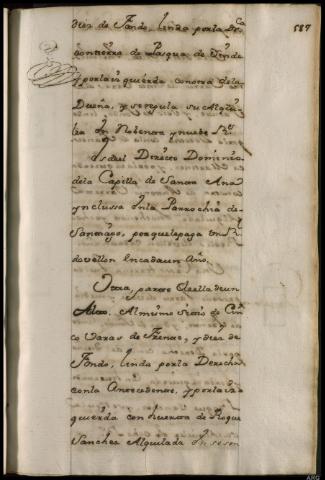 587
diez de Fondo, linda por la Dra
con tierro de Pasqua de
y por la izquierda con otra de la
Dueña, y se regula su Alqui
ler En Nobenta y nuebe Rs
Es del Directo Dominio
de la Capilla de Santa Ana
ynclussa En la Parrochia de
Santiago, por que le paga Un Rl
de vellon En cada un Año.
Otra, parte de ella de un
Alto. Al mismo sitio de Cin
co Varas de Frente, y diez de
Fondo, linda por la Derecha
con la Antecedente, y por la iz
quierda con huerta de Roque
Sanchez Alquilada En sesen
ARG